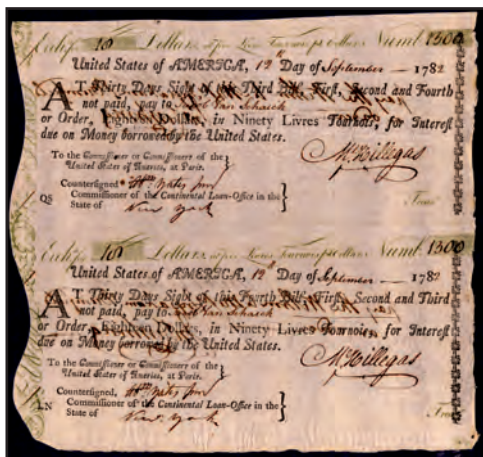 Exch. for 18 Dollars, at five Livres Tournois per Dollar. Numb. 1500
United States of AMERICA, 12th Day of September — 1782
AT Thirty Days Sight of this Third Bill, First, Second and Fourth
not paid, pay to Van Schaick
or Order, Eighteen Dollars, in Ninety Livres Tournois, for Interest
due on Money borrowed by the United States.
To the Commissioner or Commissioners of the
United States of America, at Paris.
M. Hillegas
Countersigned,
Commissioner of the Continental Loan-Office in the
QS State of New York
True
Exch. for 18 Dollars, at five Livres Tournois per Dollar. Numb. 1500
United States of AMERICA, 12th Day of September — 1782
AT Thirty Days Sight of this Fourth Bill, First, Second and Third
not paid, pay to Van Schaick
or Order, Eighteen Dollars, in Ninety Livres Tournois, for Interest
due on Money borrowed by the United States.
To the Commissioner or Commissioners of the
United States of America, at Paris.
M. Hillegas
Countersigned,
Commissioner of the Continental Loan-Office in the
LN State of New York
True